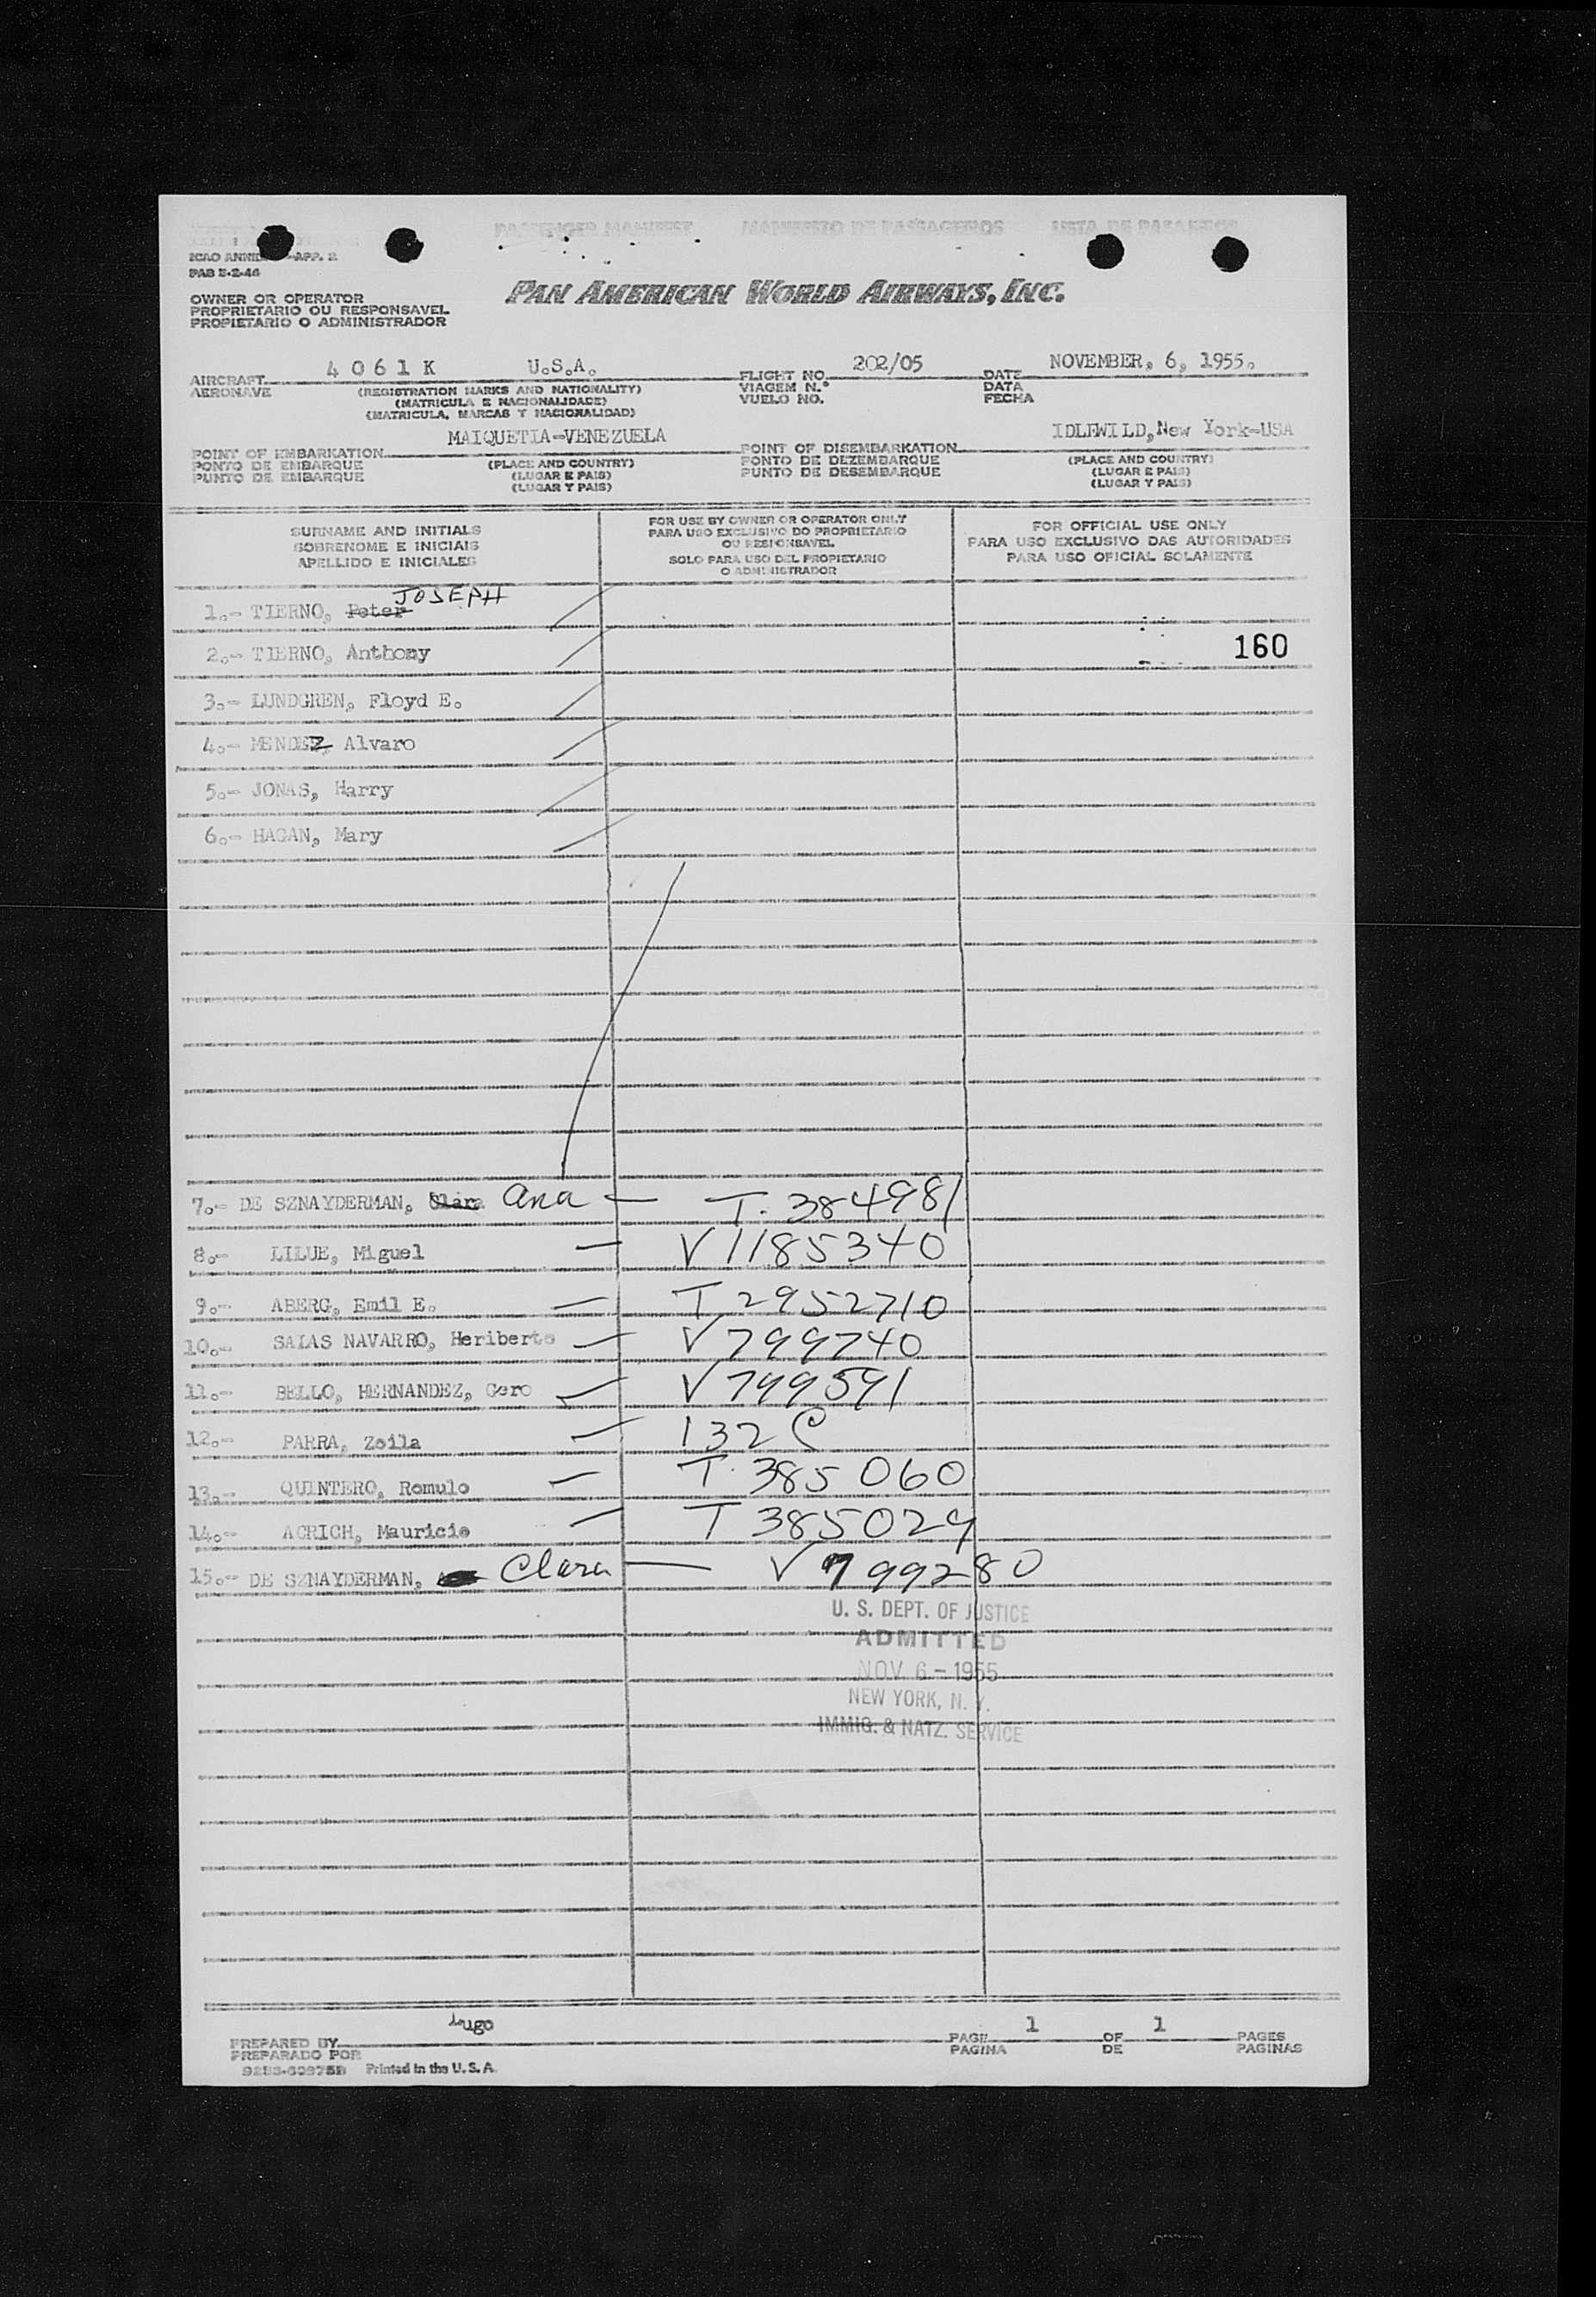 PASSENGER MANIFEST MANIFESTO DE PASSAGEIROS LISTA DE PASAJEROS
ICAO ANNEX -APP. 2
PAB 5-2-46
OWNER OR OPERATOR
PROPRIETARIO OU RESPONSAVEL
PROPIETARIO O ADMINISTRADOR
PAN AMERICAN WORLD AIRWAYS, INC.
AIRCRAFT 4 0 6 1 K U.S.A. FLIGHT NO. 202/05 DATE NOVEMBER, 6, 1955.
AERONAVE (REGISTRATION MARKS AND NATIONALITY) VIAGEM N.° DATA
(MATRICULA E NACIONALIDADE) VUELO NO. FECHA
(MATRICULA, MARCAS Y NACIONALIDAD)
POINT OF EMBARKATION MAIQUETIA-VENEZUELA POINT OF DISEMBARKATION IDLEWILD, New York-USA
PONTO DE EMBARQUE (PLACE AND COUNTRY) PONTO DE DEZEMBARQUE (PLACE AND COUNTRY)
PUNTO DE EMBARQUE (LUGAR E PAIS) PUNTO DE DESEMBARQUE (LUGAR E PAIS)
(LUGAR Y PAIS) (LUGAR Y PAIS)
SURNAME AND INITIALS
SOBRENOME E INICIAIS
APELLIDO E INICIALES
FOR USE BY OWNER OR OPERATOR ONLY
PARA USO EXCLUSIVO DO PROPRIETARIO
OU RESPONSAVEL
SOLO PARA USO DEL PROPIETARIO
O ADMINISTRADOR
FOR OFFICIAL USE ONLY
PARA USO EXCLUSIVO DAS AUTORIDADES
PARA USO OFICIAL SOLAMENTE
1.- TIERNO, Peter JOSEPH
2.- TIERNO, Anthony 160
3.- LUNDGREN, Floyd E.
4.- MENDEZ, Alvaro
5.- JONAS, Harry
6.- HAGAN, Mary
7.- DE SZNAYDERMAN, Clara Ana — T. 384981
8.- LILUE, Miguel — V 1185340
9.- ABERG, Emil E. — T 2952710
10.- SALAS NAVARRO, Heriberto — V 799740
11.- BELLO, HERNANDEZ, Cero — V 799591
12.- PARRA, Zoila — 132 C
13.- QUINTERO, Romulo — T. 385060
14.- ACRICH, Mauricio — T 385029
15.- DE SZNAYDERMAN, Clara — V 799280
U. S. DEPT. OF JUSTICE
ADMITTED
NOV 6 - 1955
NEW YORK, N. Y.
IMMIG. & NATZ. SERVICE
PREPARED BY Lugo PAGE 1 OF 1 PAGES
PREPARADO POR PAGINA DE PAGINAS
Printed in the U. S. A.